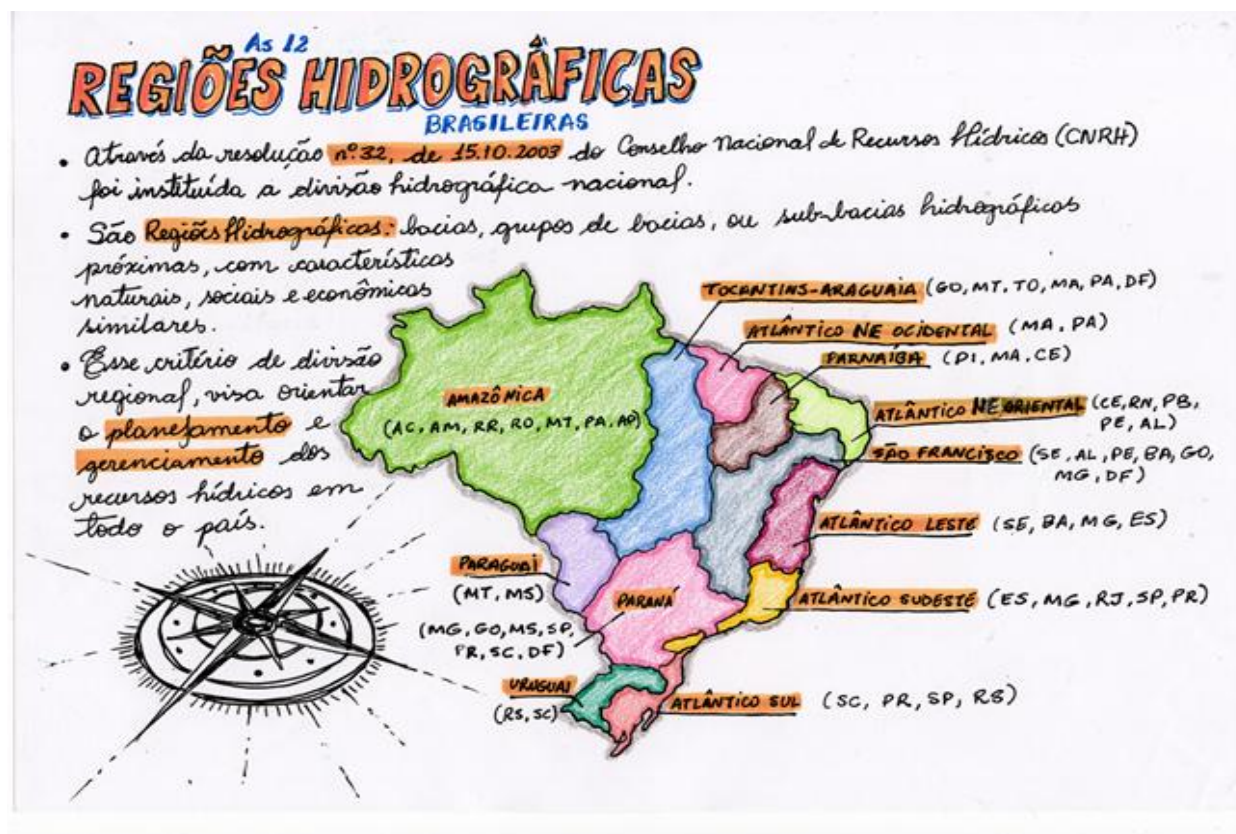 As 12
REGIÕES HIDROGRÁFICAS
BRASILEIRAS
• Através da resolução nº 32, de 15.10.2003 do Conselho Nacional de Recursos Hídricos (CNRH)
foi instituída a divisão hidrográfica nacional.
• São Regiões Hidrográficas: bacias, grupos de bacias, ou sub-bacias hidrográficas
próximas, com características
naturais, sociais e econômicas
similares.
• Esse critério de divisão
regional, visa orientar
o planejamento e
gerenciamento dos
recursos hídricos em
todo o país.
TOCANTINS-ARAGUAIA (GO, MT, TO, MA, PA, DF)
ATLÂNTICO NE OCIDENTAL (MA, PA)
PARNAÍBA (PI, MA, CE)
AMAZÔNICA
(AC, AM, RR, RO, MT, PA, AP)
ATLÂNTICO NE ORIENTAL (CE, RN, PB,
PE, AL)
SÃO FRANCISCO (SE, AL, PE, BA, GO,
MG, DF)
ATLÂNTICO LESTE (SE, BA, MG, ES)
PARAGUAI
(MT, MS)
PARANÁ
(MG, GO, MS, SP,
PR, SC, DF)
ATLÂNTICO SUDESTE (ES, MG, RJ, SP, PR)
URUGUAI
(RS, SC)
ATLÂNTICO SUL (SC, PR, SP, RS)